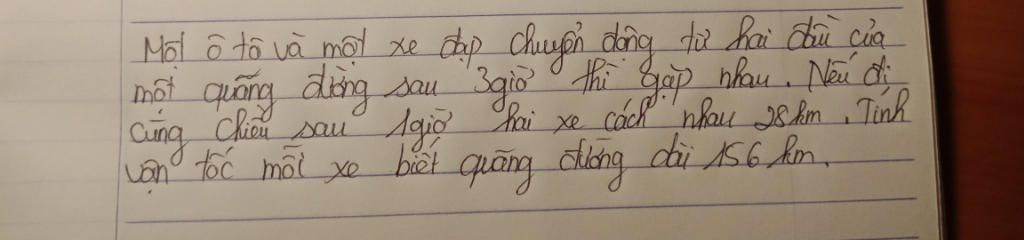 Một ô tô và một xe đạp chuyển động từ hai đầu của
một quãng đường sau 3giờ thì gặp nhau. Nếu đi
cùng chiều sau 1giờ hai xe cách nhau 28km. Tính
vận tốc mỗi xe biết quãng đường dài 156 km.